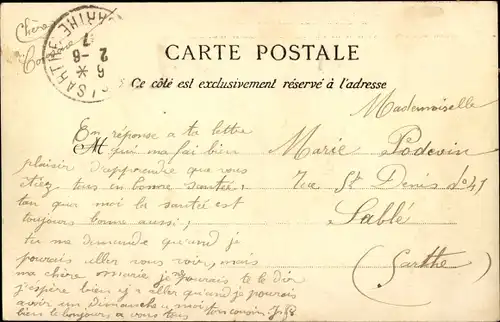 Chère
Cousine
SARTHE
6 2
CARTE POSTALE
Ce côté est exclusivement réservé à l'adresse
Mademoiselle
Marie Podevin
Rue St Denis no 41
Sablé
(Sarthe)
En réponse a ta lettre
M qui ma fai bien
plaisir d'apprendre que vous
etiez tous en bonne santée;
tan que moi la santée est
toujours bonne aussi;
tu ma demande quand je
pourais aller vous voir, mais
ma chère Marie je pourais te le dir
j'espère bien y aller quand je pourais
avoir un dimanche a moi
bien le bonjours a vous tous ton cousin